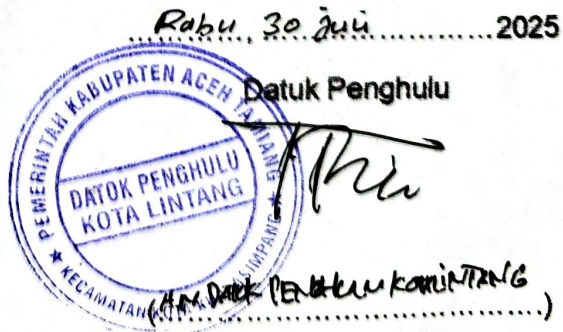 Rabu, 30 Juli 2025
Datuk Penghulu
PEMERINTAH KABUPATEN ACEH TAMIANG
DATOK PENGHULU
KOTA LINTANG
KECAMATAN
(A.n DATOK PENGHULU